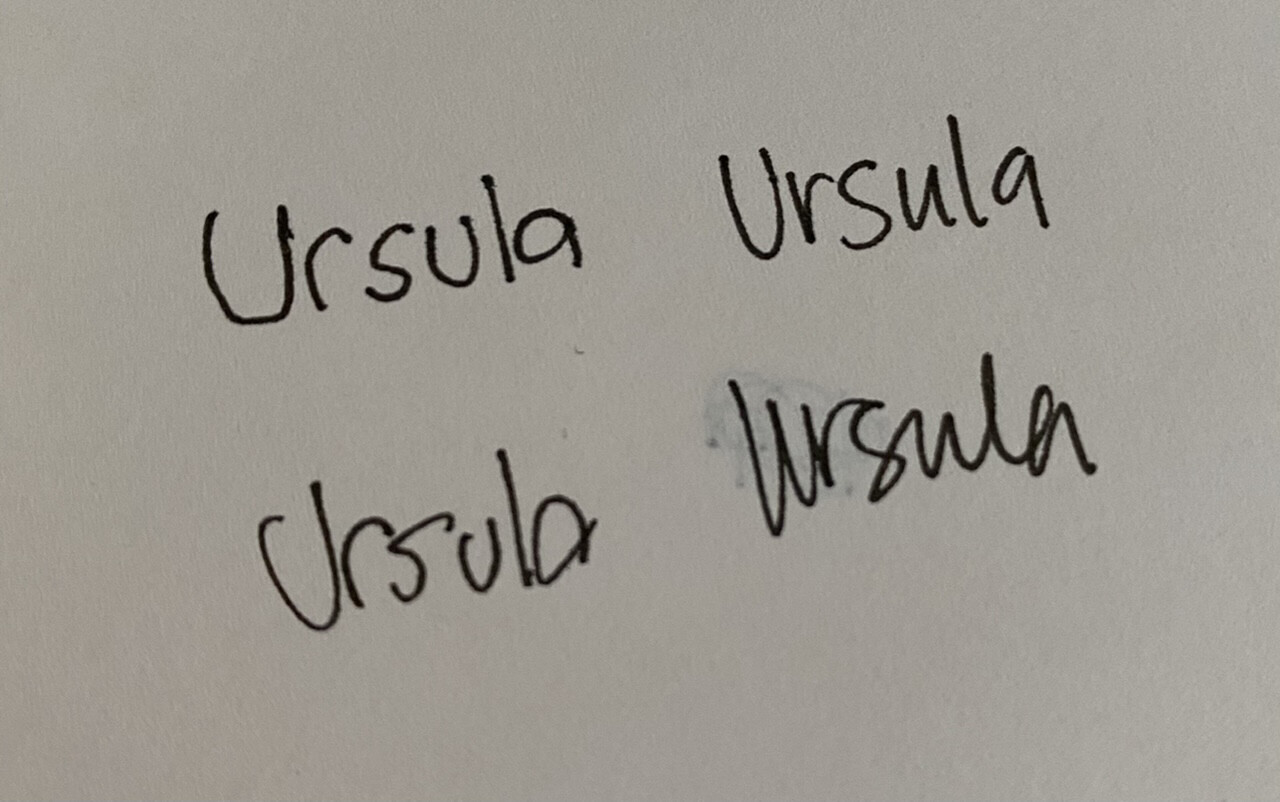 Ursula Ursula
Ursula Ursula